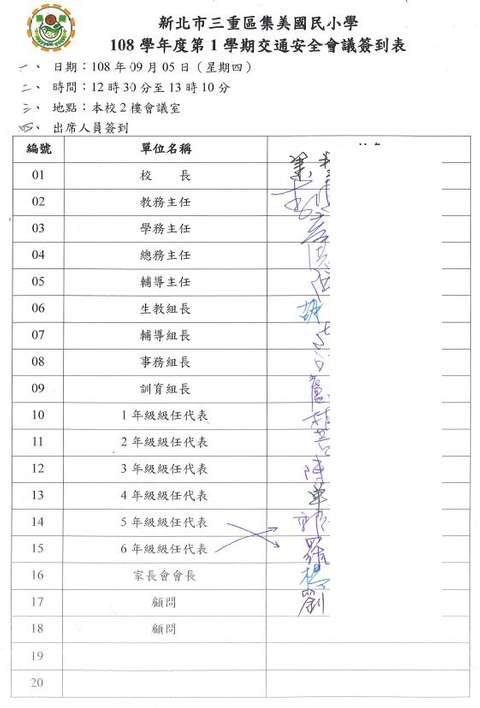 新北市三重區集美國民小學
108 學年度第 1 學期交通安全會議簽到表
一、 日期：108 年 09 月 05 日（星期四）
二、 時間：12 時 30 分至 13 時 10 分
三、 地點：本校 2 樓會議室
四、 出席人員簽到
編號 單位名稱
01 校 長
02 教務主任
03 學務主任
04 總務主任
05 輔導主任
06 生教組長
07 輔導組長
08 事務組長
09 訓育組長
10 1 年級級任代表
11 2 年級級任代表
12 3 年級級任代表 陳
13 4 年級級任代表
14 5 年級級任代表
15 6 年級級任代表 羅
16 家長會會長 楊
17 顧問 劉
18 顧問
19
20